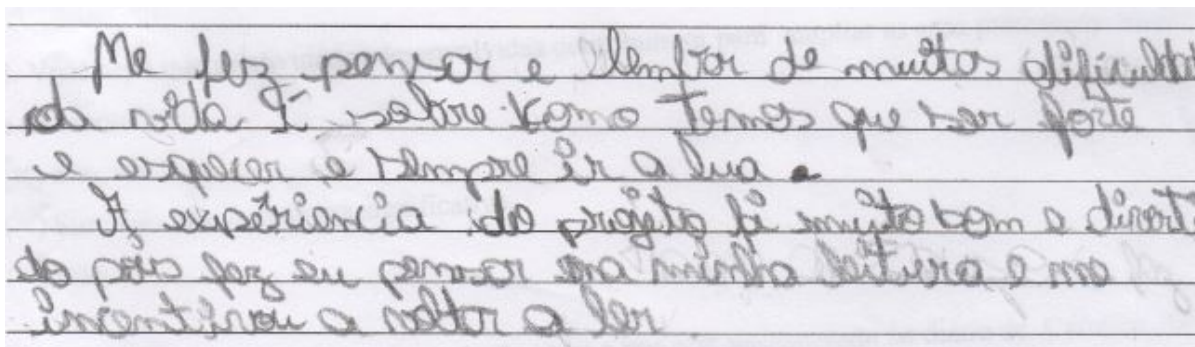 Me fez pensar e lembrar de muitas dificulda
da vida É sobre como temos que ser forte
e esquecer e sempre ir a lua.
A expêriancia do projeto fi muito bom e diverti
do pois fez eu pensar na minha leitura e me
incentivou a voltar a ler